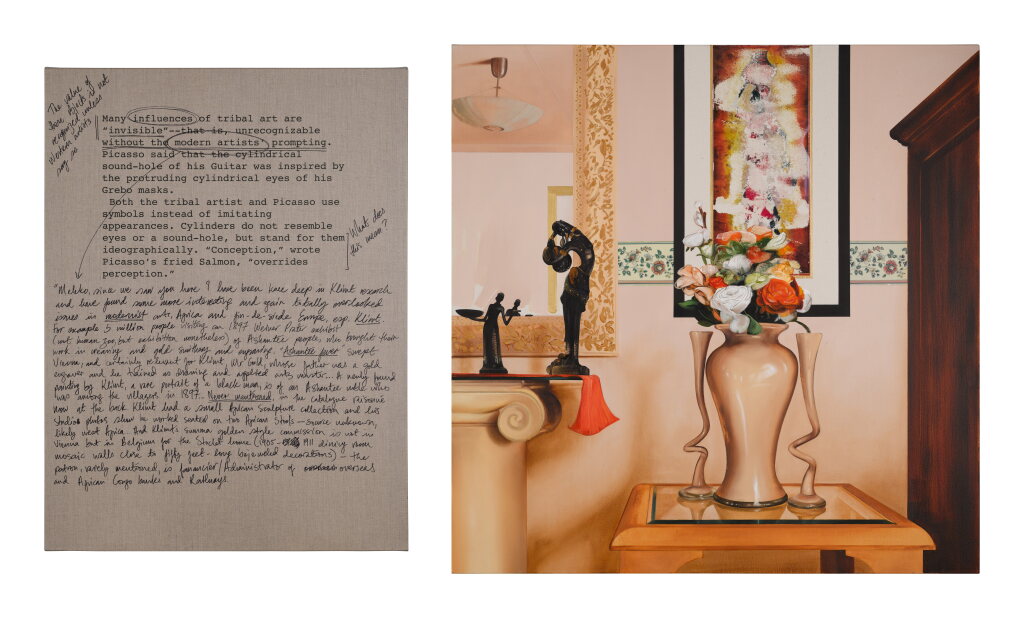 The value of
these objects is not
recognized unless
Western artists
say so
Many influences of tribal art are
"invisible"--that is, unrecognizable
without the modern artists' prompting.
Picasso said that the cylindrical
sound-hole of his Guitar was inspired by
the protruding cylindrical eyes of his
Grebo masks.
Both the tribal artist and Picasso use
symbols instead of imitating
appearances. Cylinders do not resemble
eyes or a sound-hole, but stand for them
ideographically. "Conception," wrote
Picasso's fried Salmon, "overrides
perception."
What does
this mean?
"Meleko, since we saw you here I have been knee deep in Klimt research
and have found some more interesting and again totally overlooked
issues in modernist arts, Africa and fin-de-siècle Europe, esp. Klimt.
For example 5 million people visiting an 1897 Weiner Prater exhibit
(not human zoo, but exhibition nonetheless) of Ashantee people, who brought their
work in weaving and gold smithing and engraving. "Ashantee fever" swept
Vienna, and certainly relevant for Klimt, Mr Gold, whose father was a gold
engraver and he trained in drawing and applied arts
painting by Klimt, a rare portrait of a black man, is of an Ashantee noble who
was among the villagers in 1897. Never mentioned, in the catalogue raisonne
now at the book Klimt had a small African sculpture collection, and his
studio photos show he worked seated on two African stools - source unknown,
likely West Africa. And Klimt's summa golden style commission is not in
Vienna but in Belgium for the Stoclet home (1905-1911 dining room
mosaic walls close to fifty feet-long bejeweled decorations) - the
patron, rarely mentioned, is financier/Administrator of overseas
and African Congo banks and Railways.